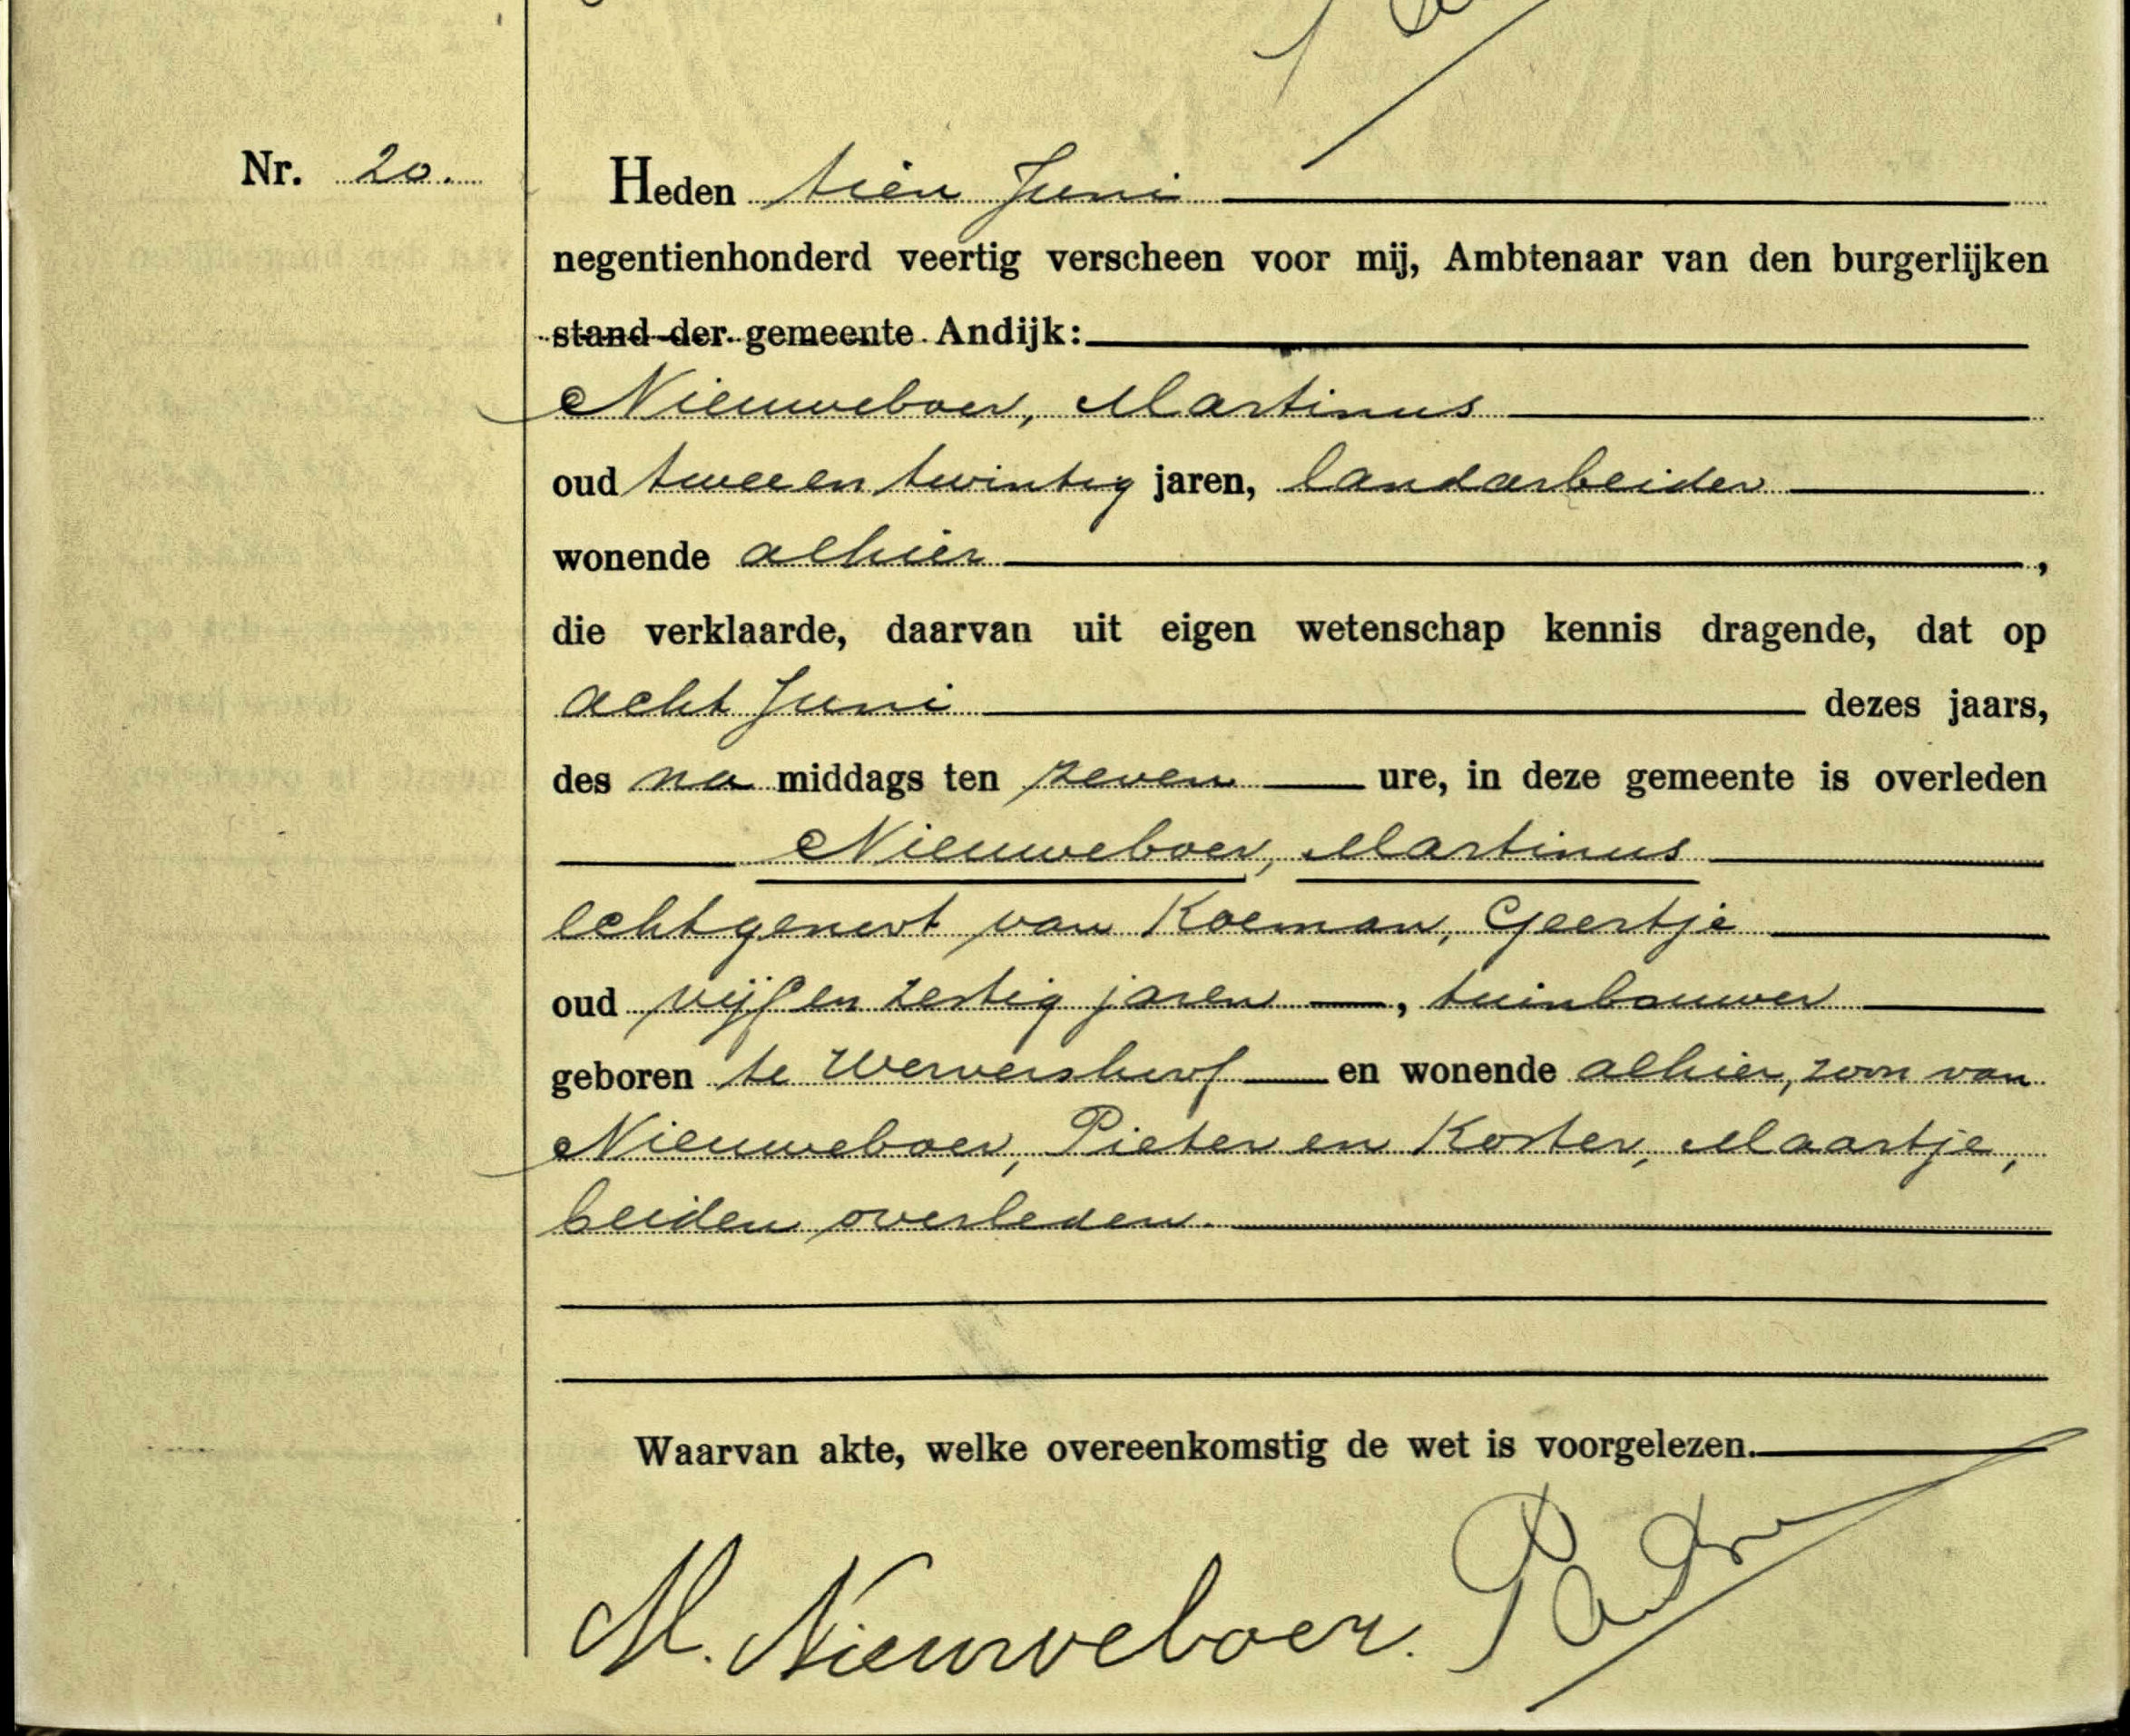 Nr. 20.
Heden tien Juni
negentienhonderd veertig verscheen voor mij, Ambtenaar van den burgerlijken
stand der gemeente Andijk:
Nieuweboer, Martinus
oud twee en twintig jaren, landarbeider
wonende alhier,
die verklaarde, daarvan uit eigen wetenschap kennis dragende, dat op
acht Juni dezes jaars,
des na middags ten zeven ure, in deze gemeente is overleden
Nieuweboer, Martinus
echtgenoot van Koeman, Geertje
oud vijf en zestig jaren, tuinbouwer
geboren te Wervershoof en wonende alhier, zoon van
Nieuweboer, Pieter en Koster, Maartje,
beiden overleden.
Waarvan akte, welke overeenkomstig de wet is voorgelezen.
M. Nieuweboer.